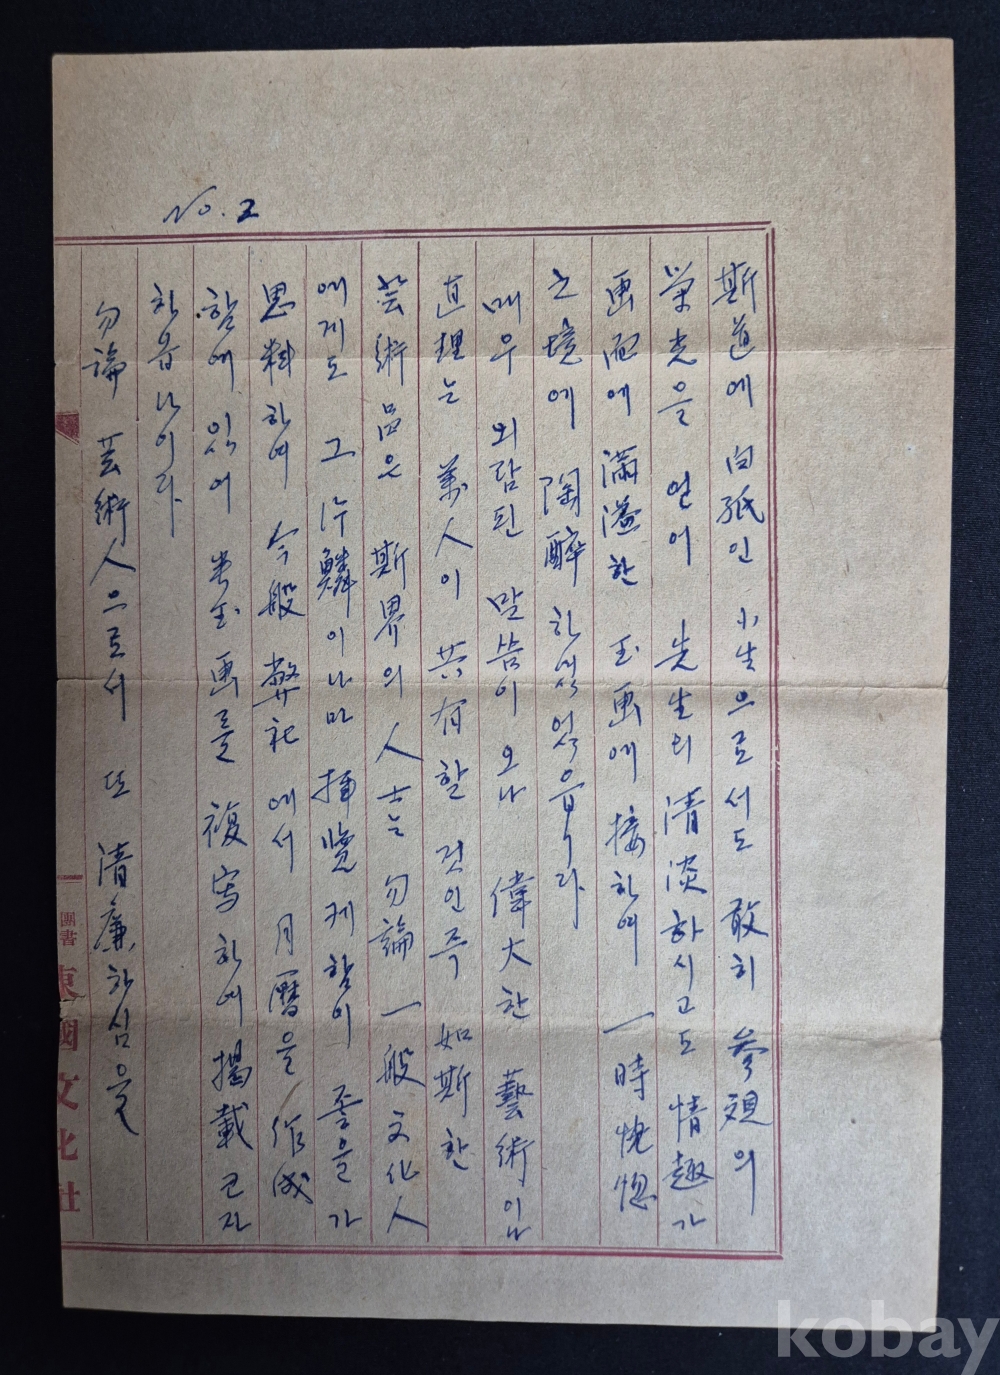 No. 2
斯道에 白紙인 小生으로서도 敢히 參観의
栄光을 얻어 先生의 清淡하시고도 情趣가
画面에 満溢한 玉画에 接하여 一時恍惚
之境에 陶酔하였었읍니다
매우 외람된 말씀이오나 偉大한 藝術입
道理는 萬人이 共有할 것인즉 如斯한
芸術品은 斯界의 人士는 勿論 一般文化人
에게도 그 片鱗이나마 揷覽케함이 좋을가
思料하여 今般 弊社에서 月曆을 作成
함에 있어 貴玉画를 複写하여 揭載코자
하옵나이다
勿論 芸術人으로서 또 清廉하심을
圖書
東國文化社
kobay